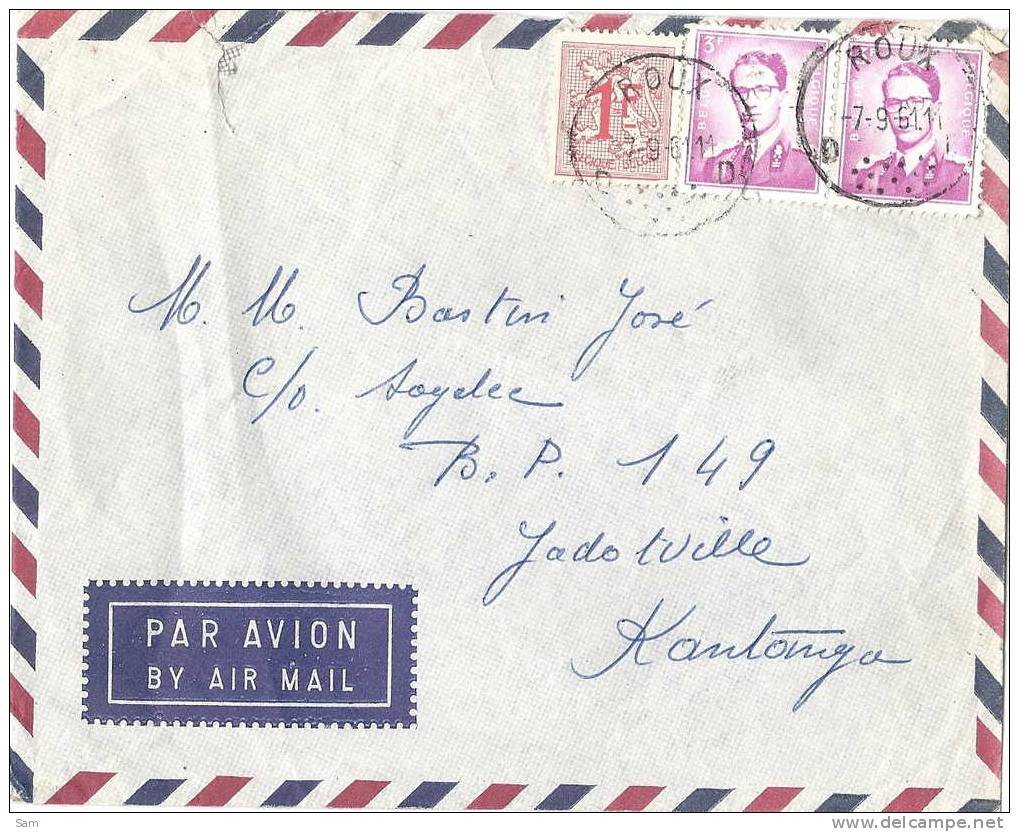 1F
BELGIQUE BELGIE
3F
BELGIË
BELGIQUE
ROUX
7-9-61.11
D D
ROUX
-7-9-61.11
D
M. M. Bastin José
c/o. Sogelec
B.P. 149
Jadotville
Kantanga
PAR AVION
BY AIR MAIL
Sam
delcampe.net